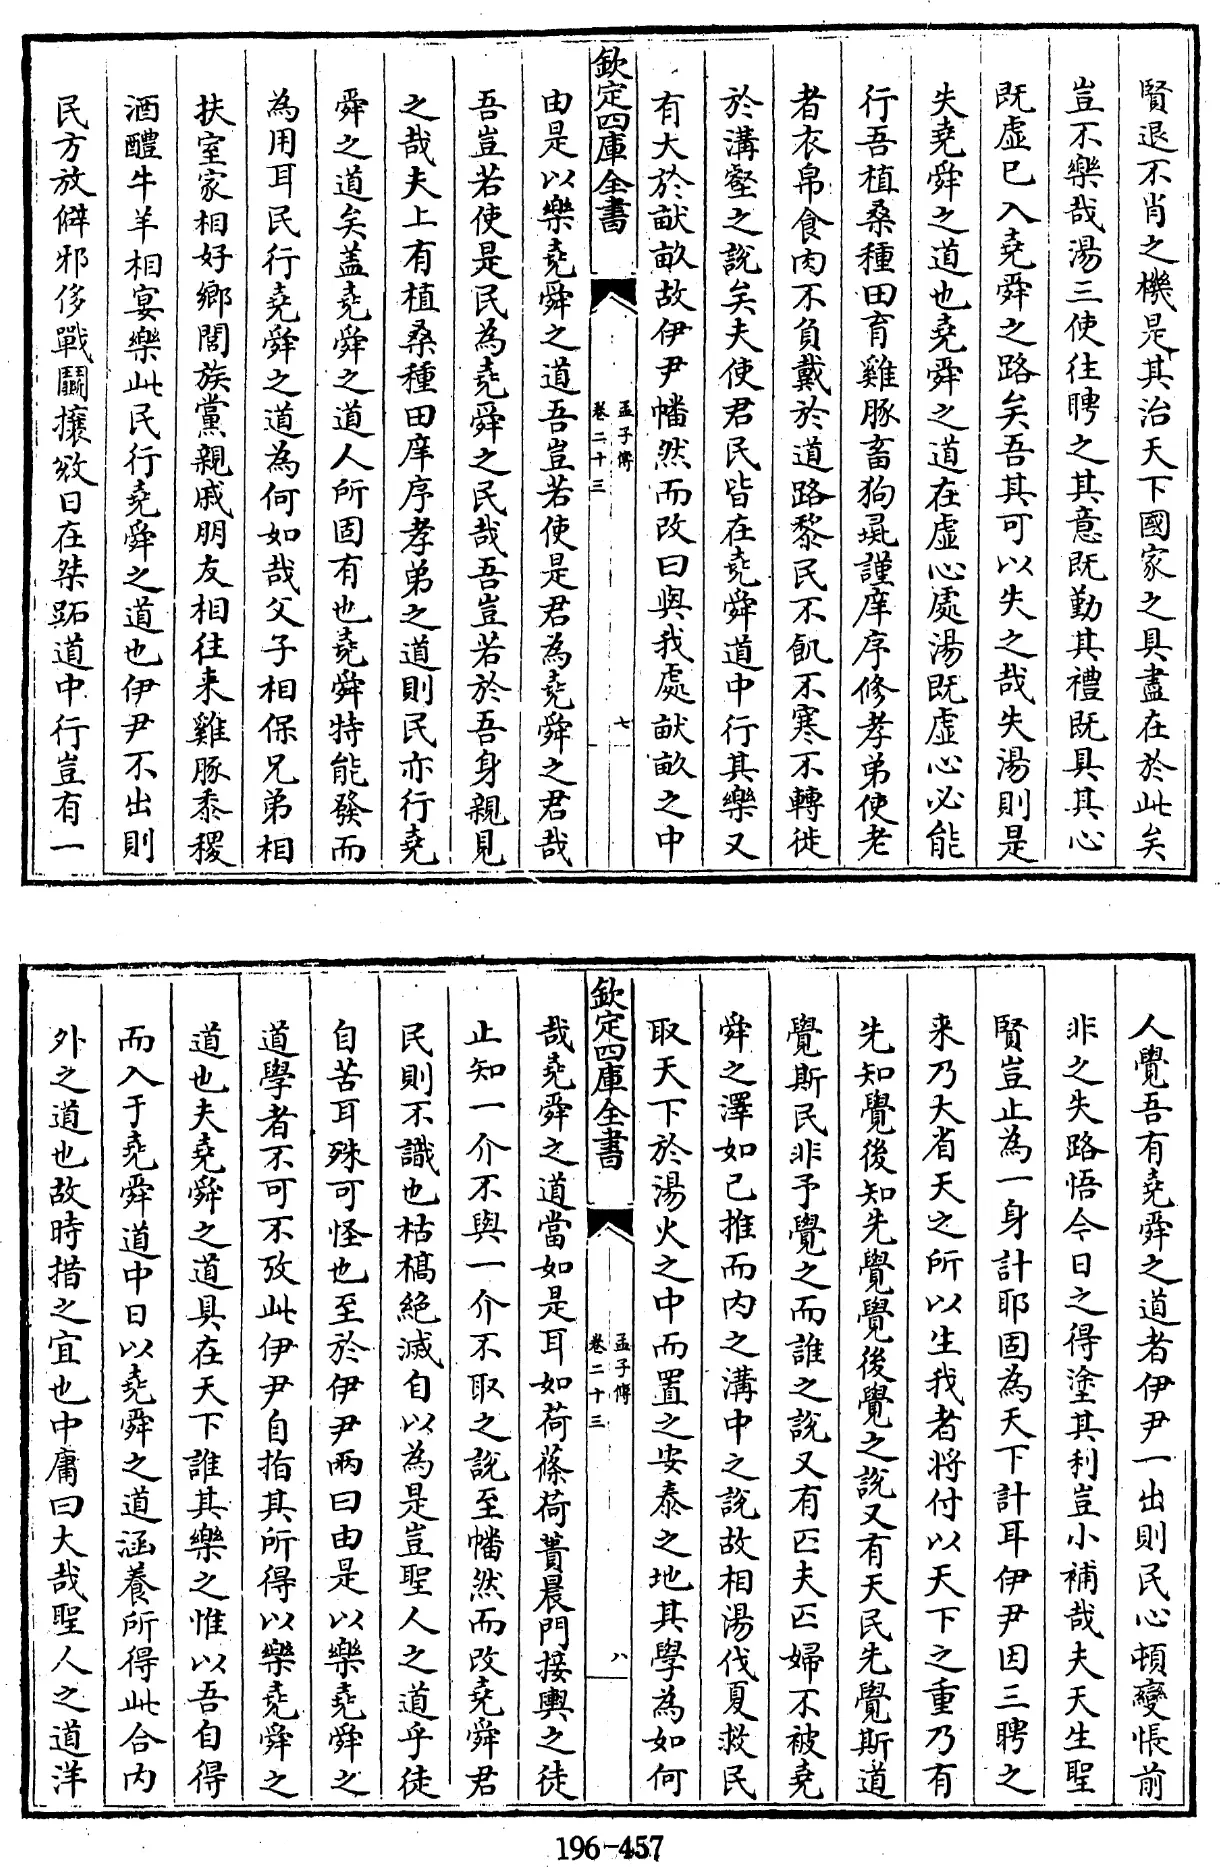 賢退不肖之機是其治天下國家之具盡在於此矣
豈不樂哉湯三使往聘之其意既勤其禮既具其心
既虛已入堯舜之路矣吾其可以失之哉失湯則是
失堯舜之道也堯舜之道在虛心處湯既虛心必能
行吾植桑種田育雞豚畜狗彘謹庠序修孝弟使老
者衣帛食肉不負戴於道路黎民不飢不寒不轉徙
於溝壑之說矣夫使君民皆在堯舜道中行其樂又
有大於畎畝故伊尹幡然而改曰與我處畎畝之中
欽定四庫全書
孟子傳
卷二十三
七
由是以樂堯舜之道吾豈若使是君為堯舜之君哉
吾豈若使是民為堯舜之民哉吾豈若於吾身親見
之哉夫上有植桑種田庠序孝弟之道則民亦行堯
舜之道矣蓋堯舜之道人所固有也堯舜特能發而
為用耳民行堯舜之道為何如哉父子相保兄弟相
扶室家相好鄉閭族黨親戚朋友相往来雞豚黍稷
酒醴牛羊相宴樂此民行堯舜之道也伊尹不出則
民方放僻邪侈戰鬬攘敓日在桀跖道中行豈有一
人覺吾有堯舜之道者伊尹一出則民心頓變悵前
非之失路悟今日之得塗其利豈小補哉夫天生聖
賢豈止為一身計耶固為天下計耳伊尹因三聘之
来乃大省天之所以生我者將付以天下之重乃有
先知覺後知先覺覺後覺之說又有天民先覺斯道
覺斯民非予覺之而誰之說又有匹夫匹婦不被堯
舜之澤如已推而内之溝中之說故相湯伐夏救民
取天下於湯火之中而置之安泰之地其學為如何
欽定四庫全書
孟子傳
卷二十三
八
哉堯舜之道當如是耳如荷蓧荷蕢晨門接輿之徒
止知一介不與一介不取之說至幡然而改堯舜君
民則不識也枯槁絕滅自以為是豈聖人之道乎徒
自苦耳殊可怪也至於伊尹兩曰由是以樂堯舜之
道學者不可不攷此伊尹自指其所得以樂堯舜之
道也夫堯舜之道具在天下誰其樂之惟以吾自得
而入于堯舜道中日以堯舜之道涵養所得此合内
外之道也故時措之宜也中庸曰大哉聖人之道洋
196-457